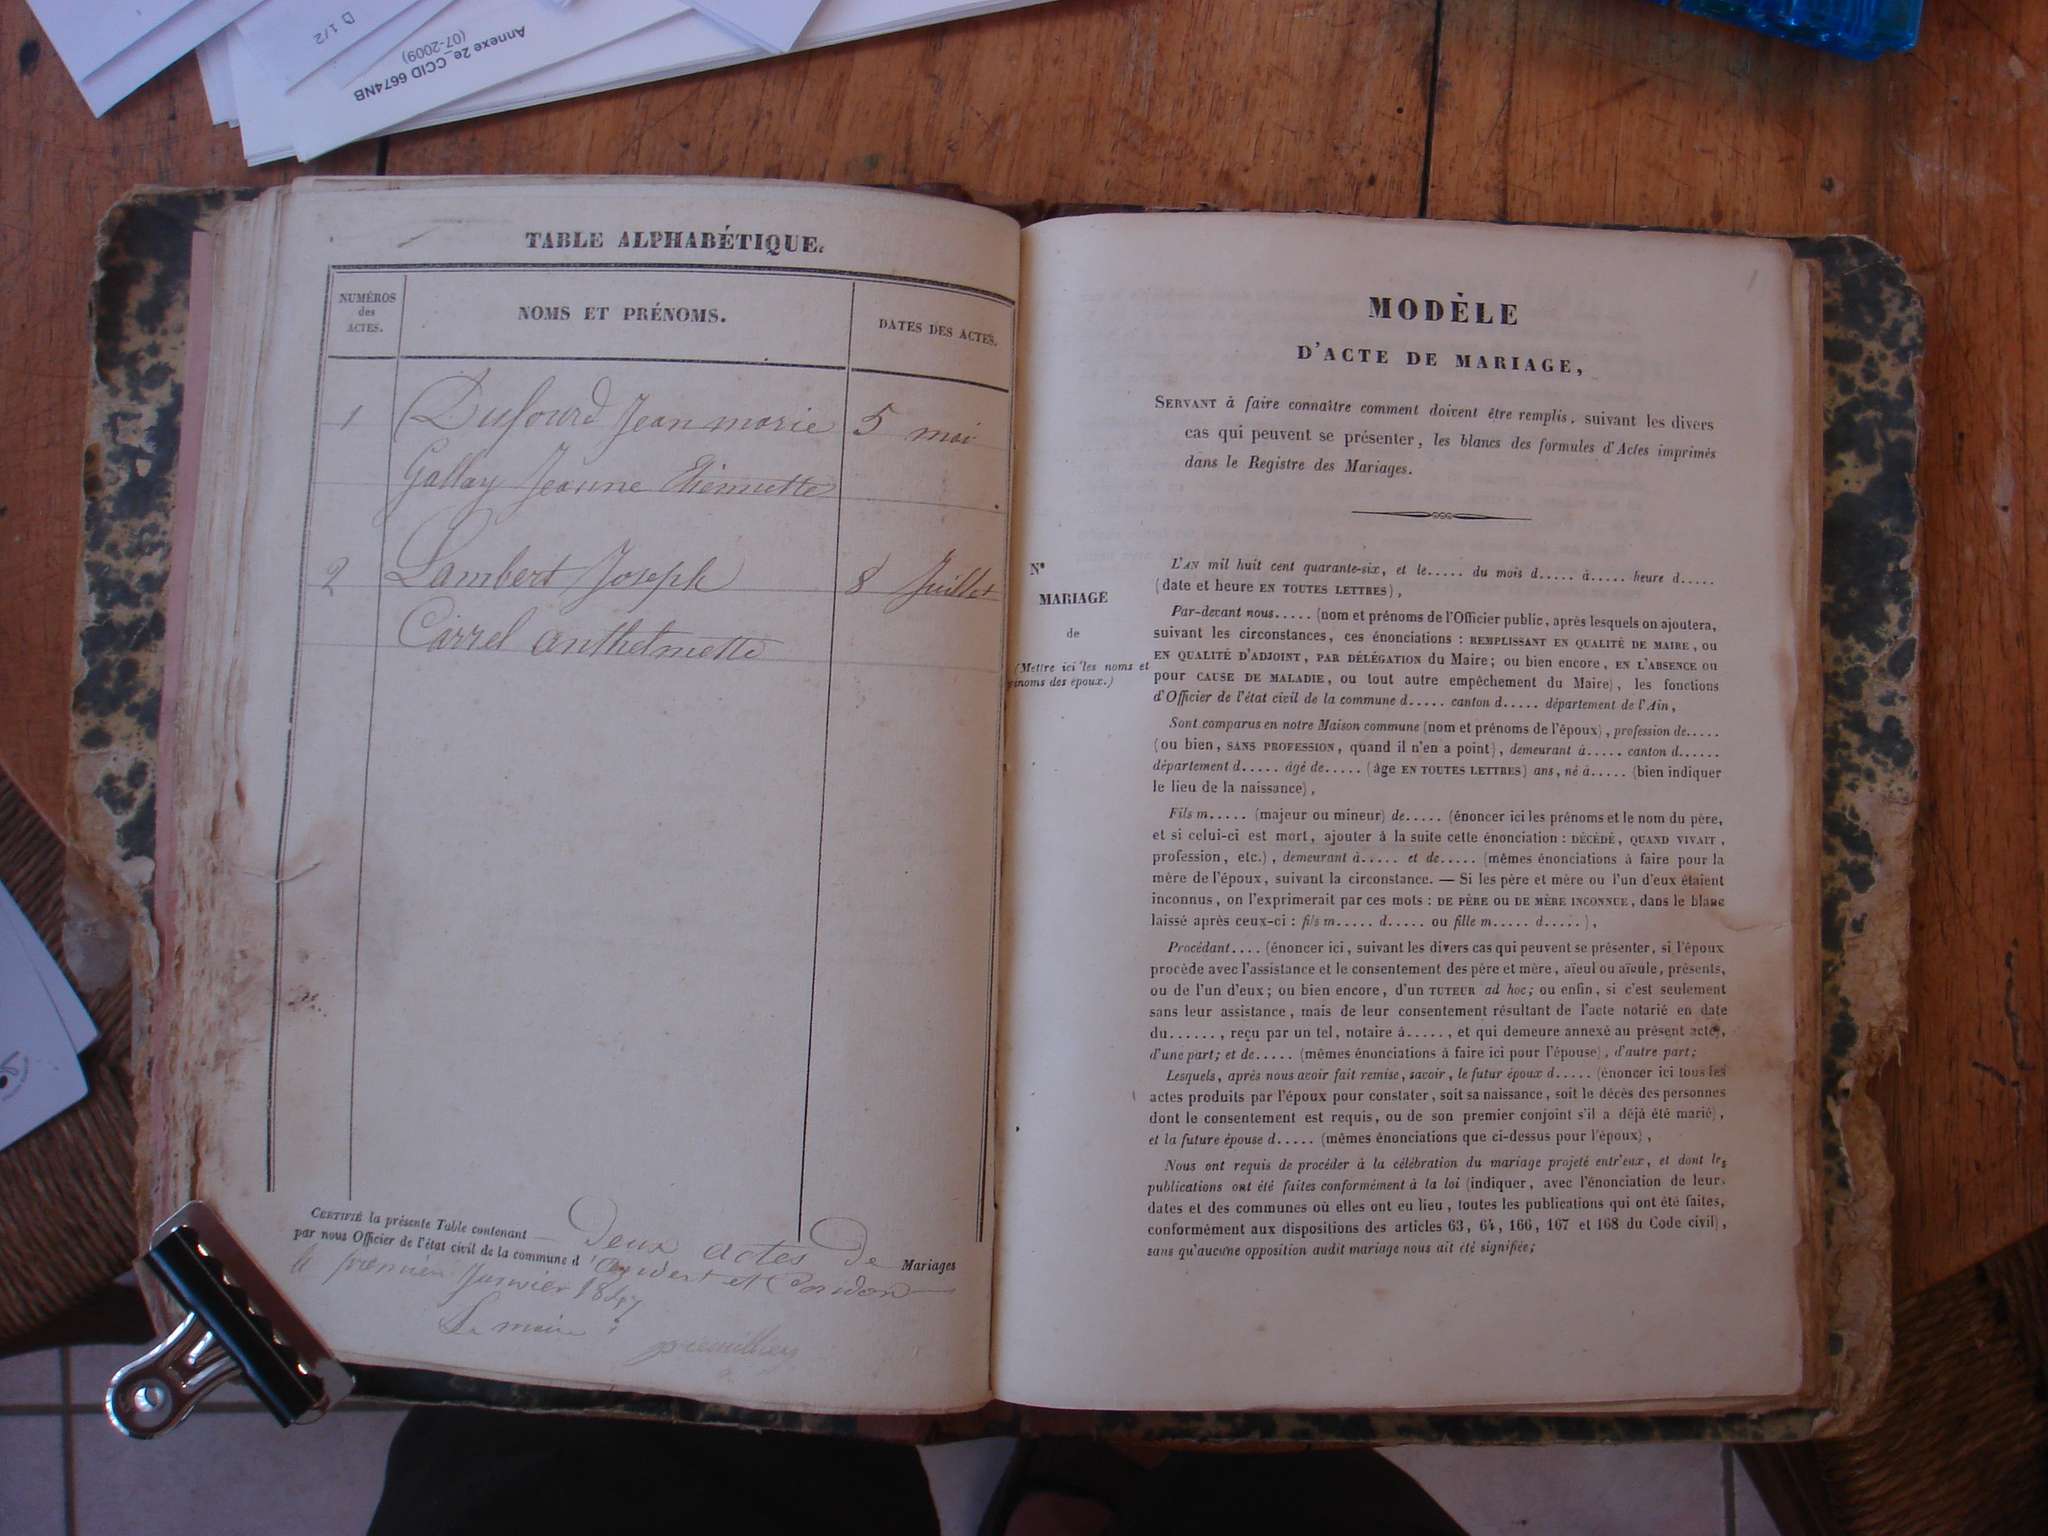 D 1/2
Annexe 2e_CCID 6674NB
(07-2009)
TABLE ALPHABÉTIQUE.
NUMÉROS
des
ACTES.
NOMS ET PRÉNOMS.
DATES DES ACTES.
1 Dufourd Jean marie 5 mai
Gallay Jeanne Etiennette
2 Lambert Joseph 8 Juillet
Carrel anthelmette
CERTIFIÉ la présente Table contenant deux actes de Mariages
par nous Officier de l'état civil de la commune d' et Condon
le premier Janvier 1847
Le maire
MODÈLE
D'ACTE DE MARIAGE,
SERVANT à faire connaître comment doivent être remplis, suivant les divers
cas qui peuvent se présenter, les blancs des formules d'Actes imprimés
dans le Registre des Mariages.
N°
MARIAGE
de
(Mettre ici les noms et
prénoms des époux.)
L'AN mil huit cent quarante-six, et le..... du mois d..... à..... heure d.....
(date et heure EN TOUTES LETTRES),
Par-devant nous..... (nom et prénoms de l'Officier public, après lesquels on ajoutera,
suivant les circonstances, ces énonciations : REMPLISSANT EN QUALITÉ DE MAIRE, ou
EN QUALITÉ D'ADJOINT, PAR DÉLÉGATION du Maire; ou bien encore, EN L'ABSENCE ou
pour CAUSE DE MALADIE, ou tout autre empêchement du Maire), les fonctions
d'Officier de l'état civil de la commune d..... canton d..... département de l'Ain,
Sont comparus en notre Maison commune (nom et prénoms de l'époux), profession de.....
(ou bien, SANS PROFESSION, quand il n'en a point), demeurant à..... canton d......
département d..... âgé de..... (âge EN TOUTES LETTRES) ans, né à..... (bien indiquer
le lieu de la naissance),
Fils m..... (majeur ou mineur) de..... (énoncer ici les prénoms et le nom du père,
et si celui-ci est mort, ajouter à la suite cette énonciation : DÉCÉDÉ, QUAND VIVAIT,
profession, etc.), demeurant à..... et de..... (mêmes énonciations à faire pour la
mère de l'époux, suivant la circonstance. — Si les père et mère ou l'un d'eux étaient
inconnus, on l'exprimerait par ces mots : DE PÈRE ou DE MÈRE INCONNUE, dans le blanc
laissé après ceux-ci : fils m..... d..... ou fille m..... d.....),
Procédant.... (énoncer ici, suivant les divers cas qui peuvent se présenter, si l'époux
procède avec l'assistance et le consentement des père et mère, aïeul ou aïeule, présents,
ou de l'un d'eux; ou bien encore, d'un TUTEUR ad hoc; ou enfin, si c'est seulement
sans leur assistance, mais de leur consentement résultant de l'acte notarié en date
du......, reçu par un tel, notaire à....., et qui demeure annexé au présent acte),
d'une part; et de..... (mêmes énonciations à faire ici pour l'épouse), d'autre part;
Lesquels, après nous avoir fait remise, savoir, le futur époux d..... (énoncer ici tous les
actes produits par l'époux pour constater, soit sa naissance, soit le décès des personnes
dont le consentement est requis, ou de son premier conjoint s'il a déjà été marié),
et la future épouse d..... (mêmes énonciations que ci-dessus pour l'époux),
Nous ont requis de procéder à la célébration du mariage projeté entr'eux, et dont les
publications ont été faites conformément à la loi (indiquer, avec l'énonciation de leurs
dates et des communes où elles ont eu lieu, toutes les publications qui ont été faites,
conformément aux dispositions des articles 63, 64, 166, 167 et 168 du Code civil),
sans qu'aucune opposition audit mariage nous ait été signifiée;